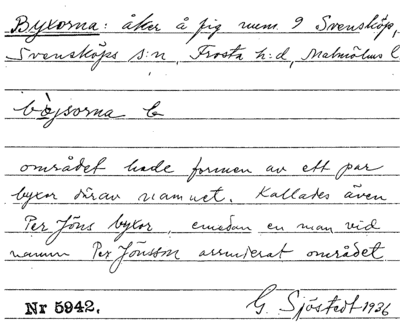 Byxorna: åker å fig num. 9 Svensköp,
Svensköps s:n, Frosta h:d, Malmöhus l
bòjsorna b
området hade formen av ett par
byxor därav namnet. Kallades även
Per Jöns byxor, emedan en man vid
namn Per Jönsson arrenderat området
Nr 5942. G. Sjöstedt 1936